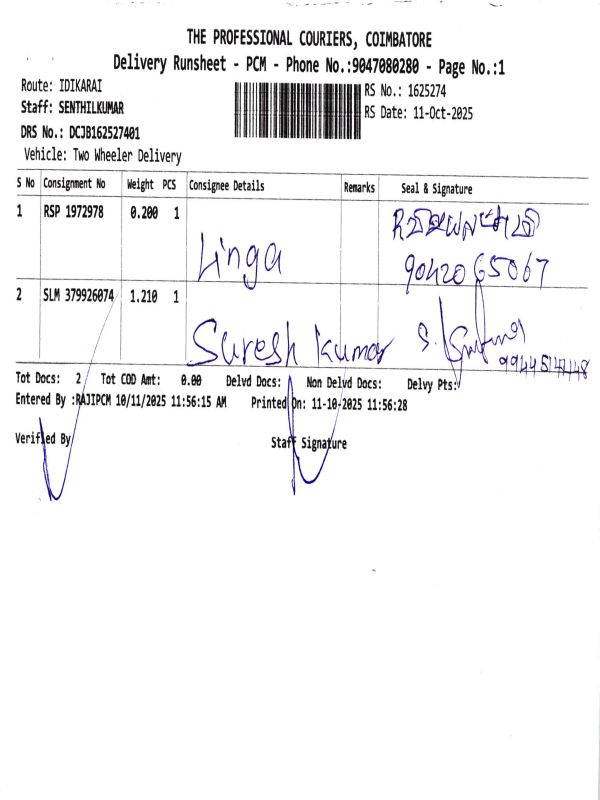 THE PROFESSIONAL COURIERS, COIMBATORE
Delivery Runsheet - PCM - Phone No.:9047080280 - Page No.:1
Route: IDIKARAI
RS No.: 1625274
Staff: SENTHILKUMAR
RS Date: 11-Oct-2025
DRS No.: DCJB162527401
Vehicle: Two Wheeler Delivery
S No Consignment No Weight PCS Consignee Details Remarks Seal & Signature
1 RSP 1972978 0.200 1
Linga 9042065067
2 SLM 379926074 1.210 1
Suresh Kumar S.
Tot Docs: 2 Tot COD Amt: 0.00 Delvd Docs: Non Delvd Docs: Delvy Pts:
Entered By :RAJIPCM 10/11/2025 11:56:15 AM Printed On: 11-10-2025 11:56:28
Verified By Staff Signature